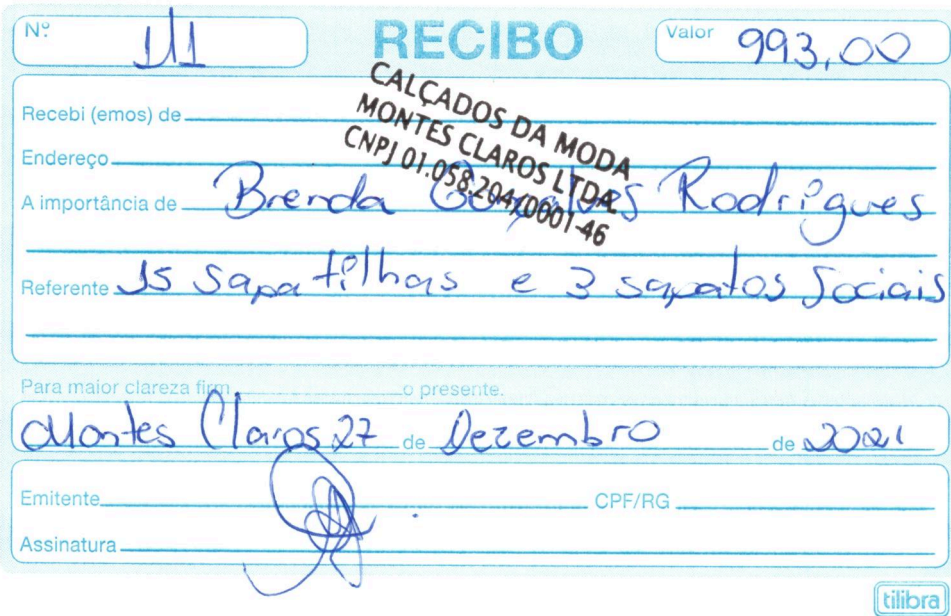 Nº 1/1 RECIBO Valor 993,00
CALÇADOS DA MODA
MONTES CLAROS LTDA
CNPJ 01.058.204/0001-46
Recebi (emos) de
Endereço
A importância de Brenda Gonçalves Rodrigues
Referente 15 Sapatilhas e 3 sapatos Sociais
Para maior clareza firm o presente.
Montes Claros 27 de Dezembro de 2021
Emitente CPF/RG
Assinatura
tilibra